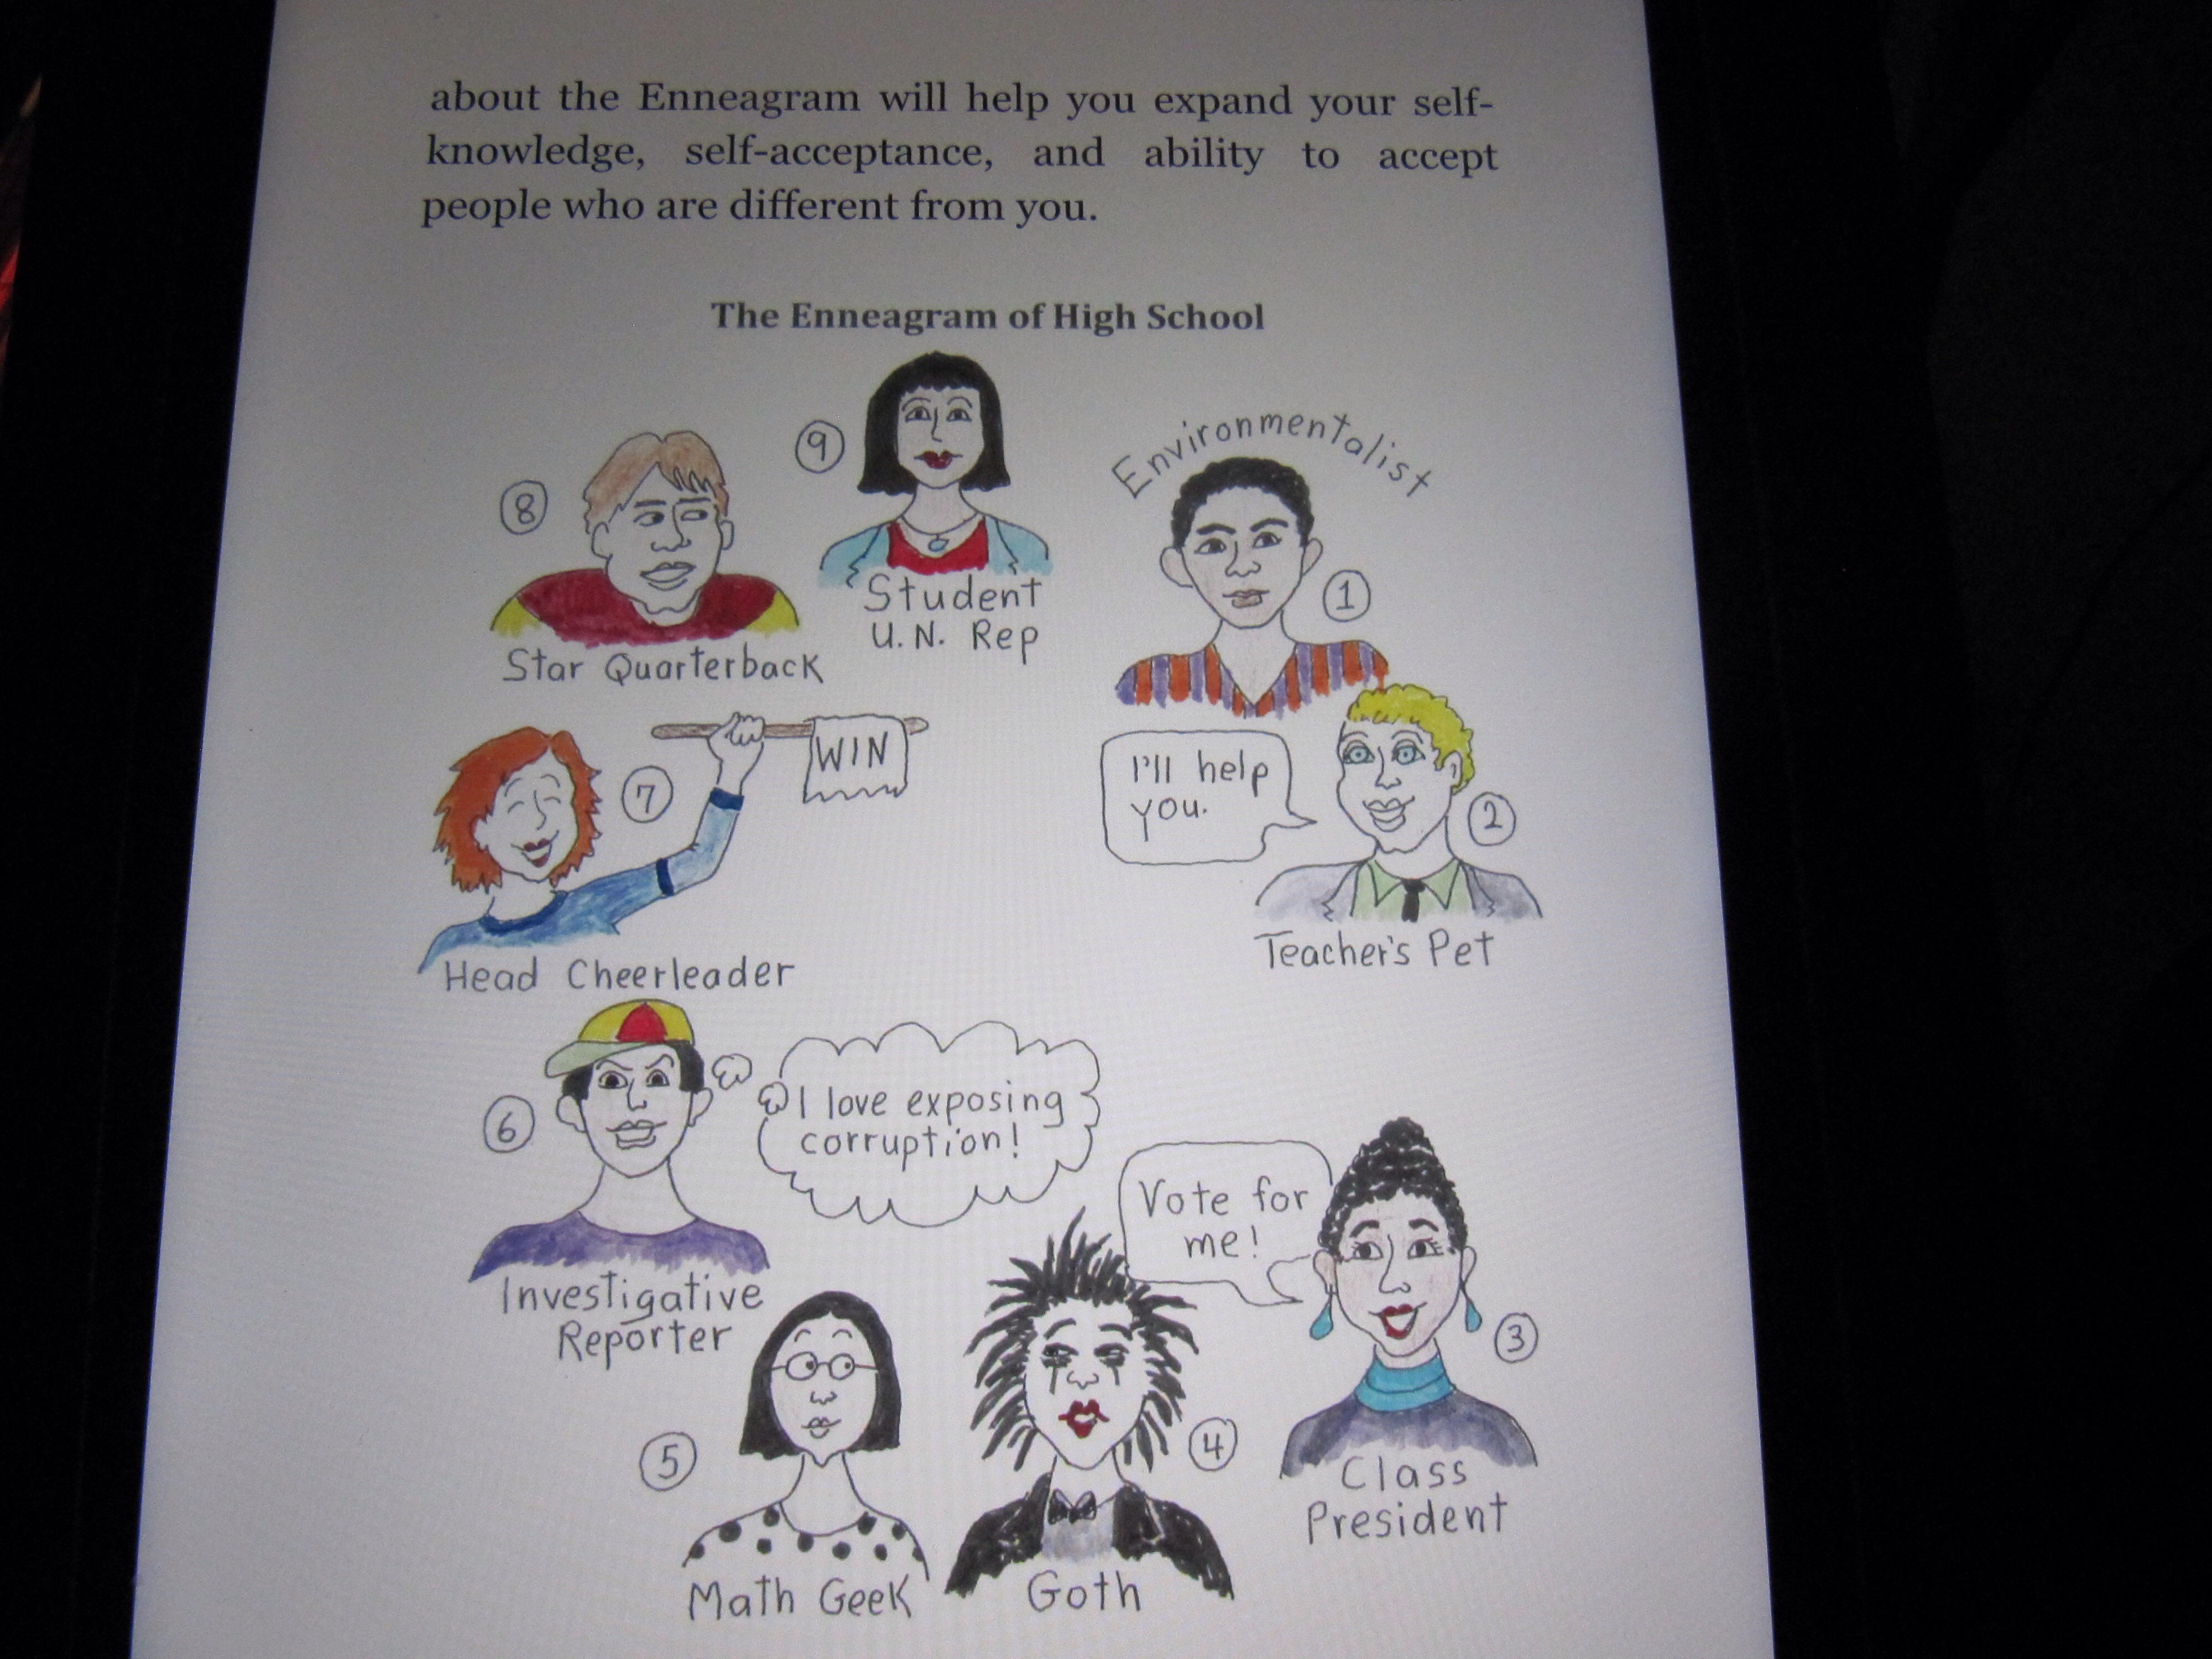 about the Enneagram will help you expand your self-
knowledge, self-acceptance, and ability to accept
people who are different from you.
The Enneagram of High School
9
Student
U.N. Rep
Environmentalist
1
8
Star Quarterback
WIN
7
Head Cheerleader
I'll help
you.
2
Teacher's Pet
6
I love exposing
corruption!
Investigative
Reporter
Vote for
me!
3
Class
President
5
Math Geek
4
Goth